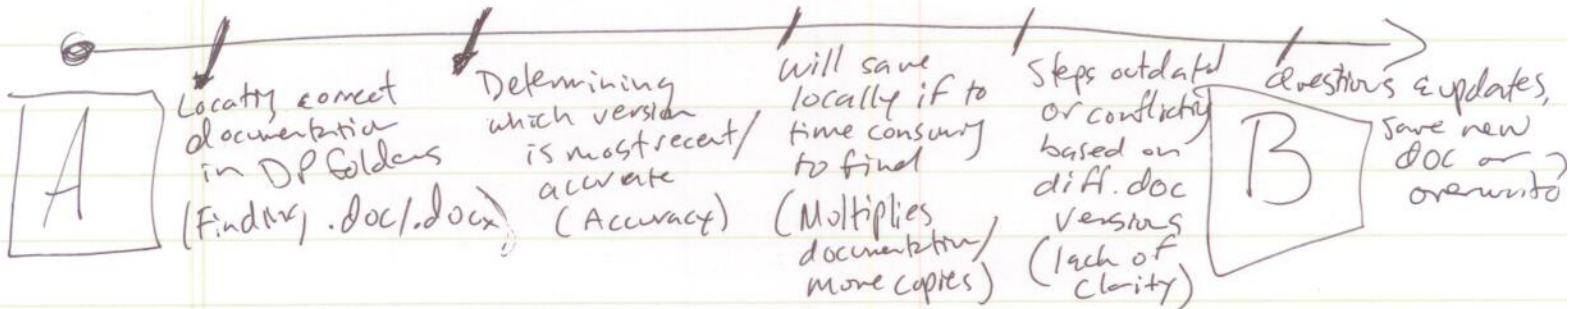 A
Locating correct
documentation
in DP folders
(Finding .doc/.docx)
Determining
which version
is most recent/
accurate
(Accuracy)
will save
locally if to
time consuming
to find
(Multiplies
documentation/
more copies)
Steps outdated
or conflicting
based on
diff. doc
versions
(lack of
clarity)
B
Questions & updates,
save new
doc or
overwrite